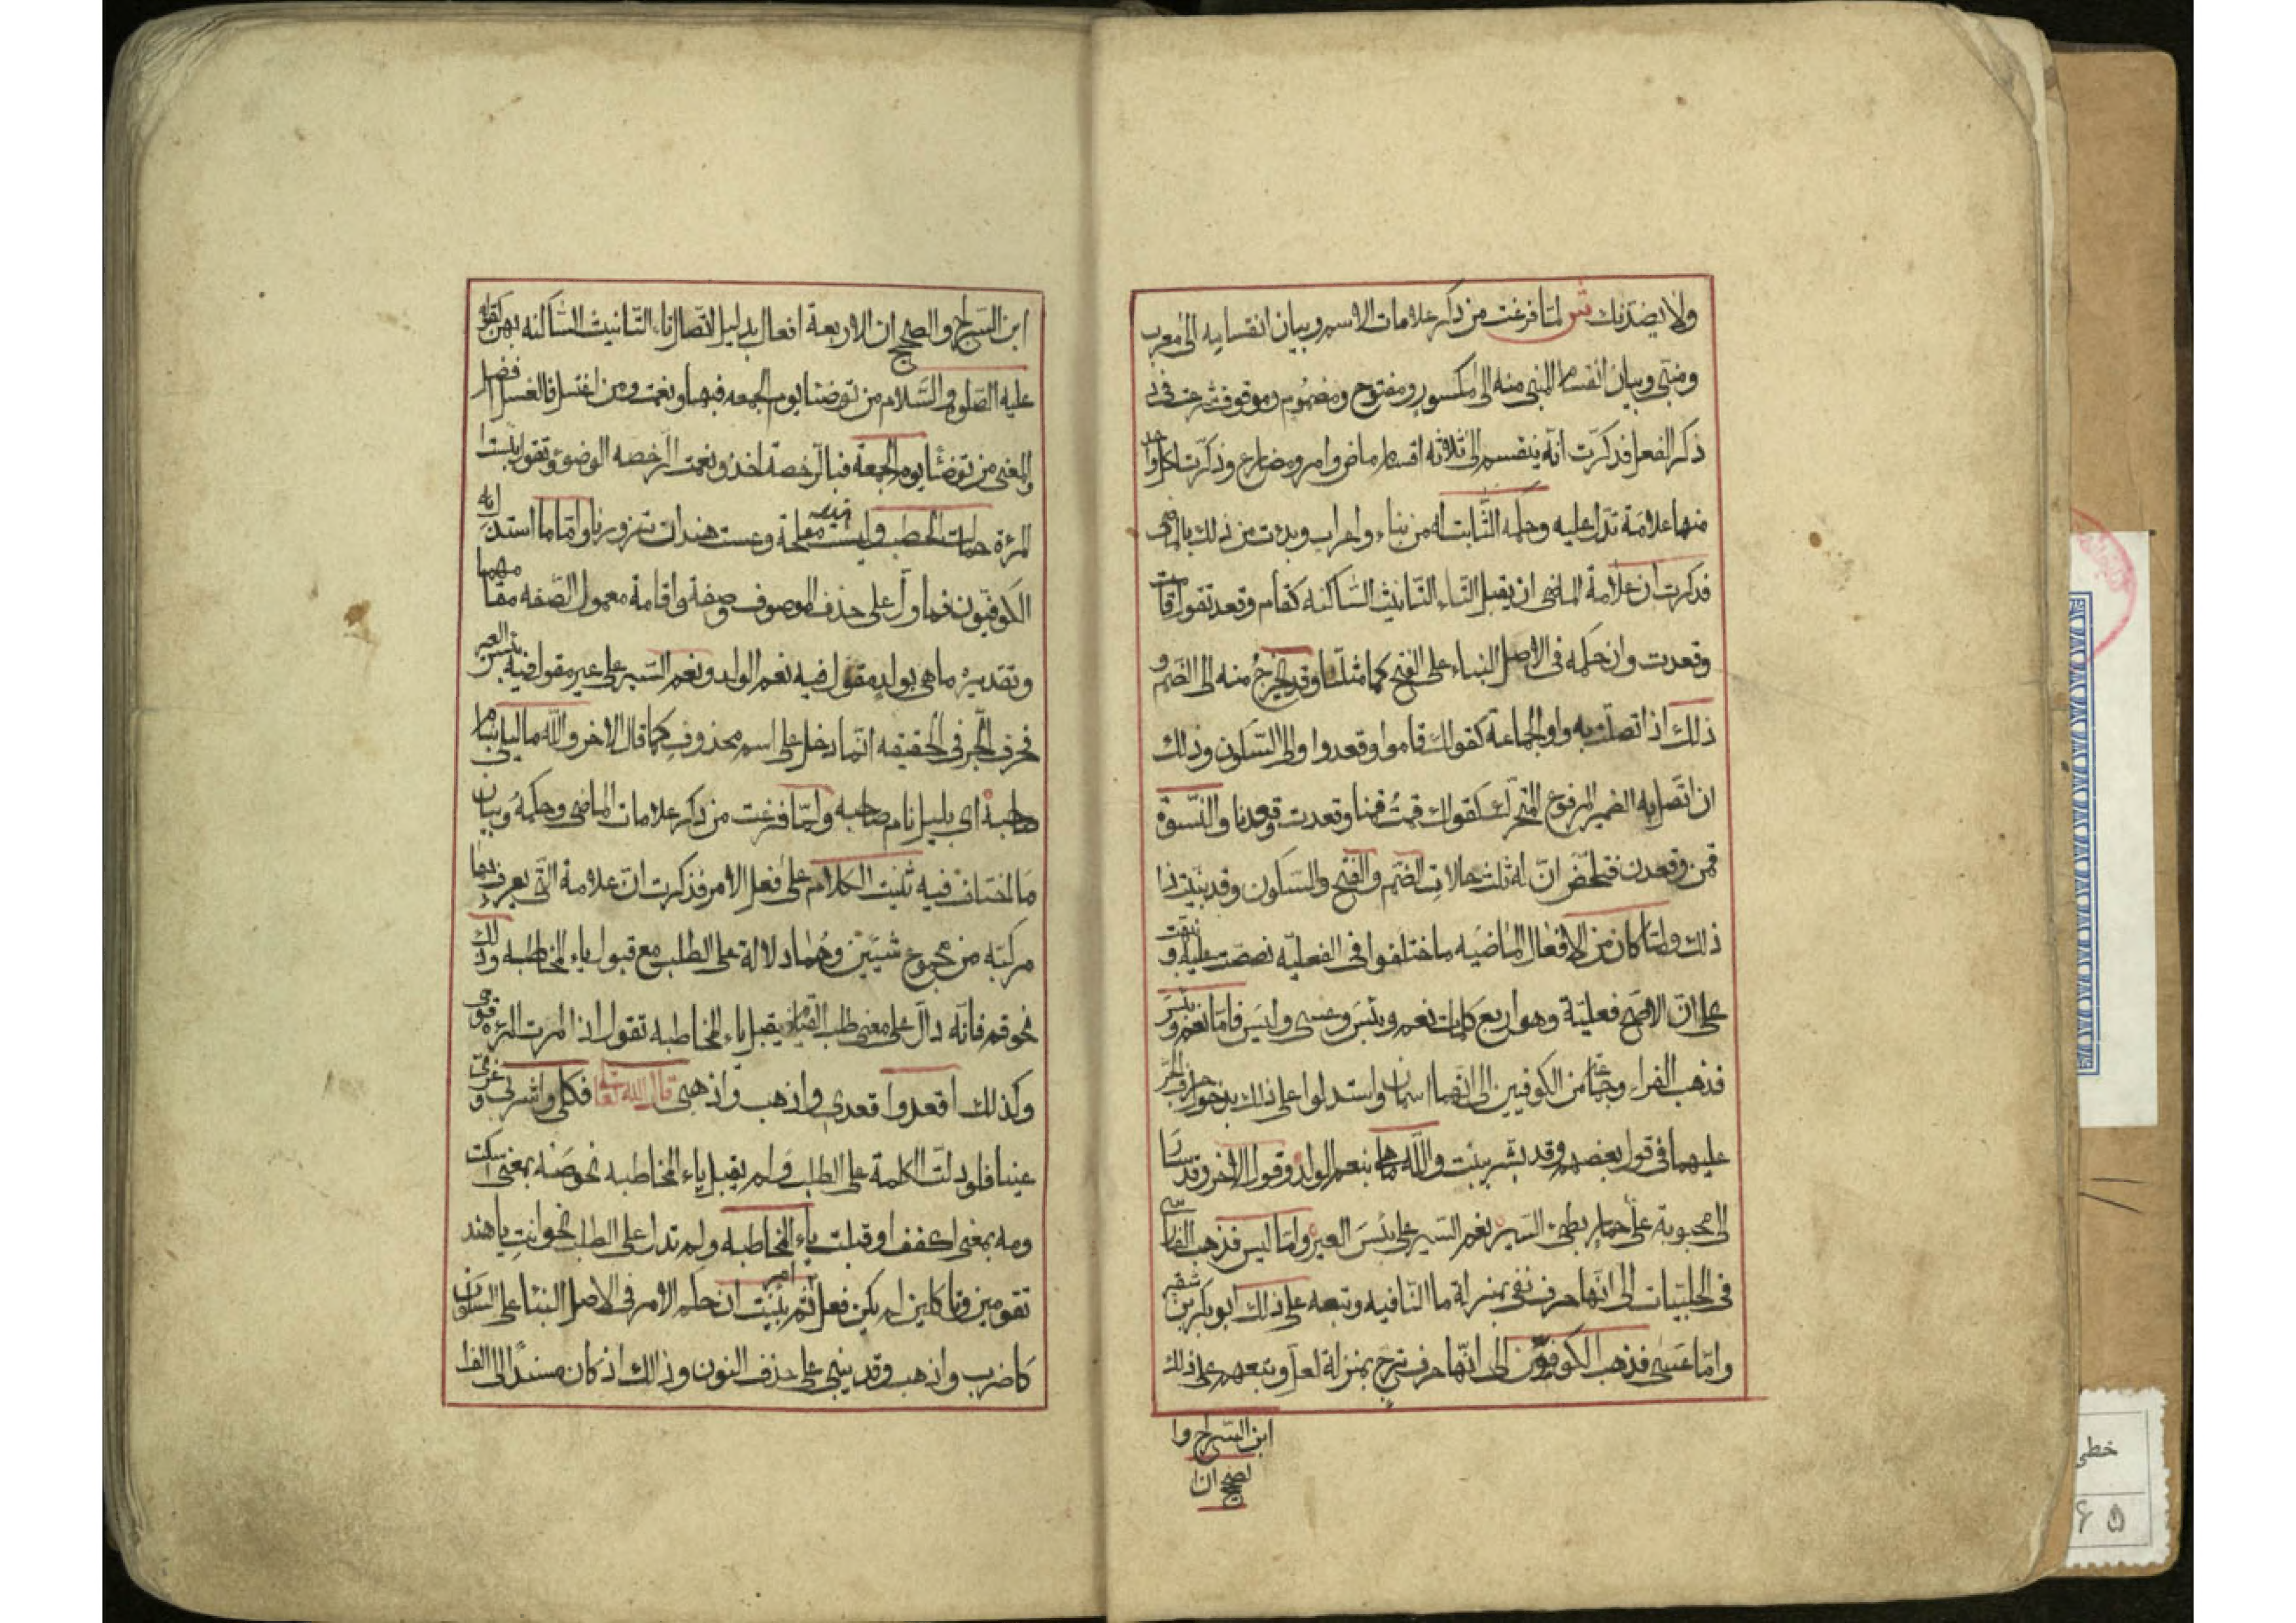 ولا يضدنك ش لمّا فرغت من ذكر علامات الاسم وبيان انقسامه الى معرب
ومبنى وبيان انقسام المبنى منه الى مكسور ومفتوح ومضموم وموقوف شرعت فى
ذكر الفعل فذكرت انّه ينقسم الى ثلاثه اقسام ماض وامر ومضارع وذكرت لكل واحد
منها علامة تدل عليه وحكمه الثابت له من بناء واعراب وبدئت من ذلك بالماضى
فذكرت ان علامة الماضى ان يقبل التاء التانيث الساكنه كقام وقعد تقول قامت
وقعدت وان حكمه فى الاصل البناء على الفتح كما مثلنا وقد يخرج منه الى الضم و
ذلك اذا تصلت به واو الجماعة كقولك قاموا وقعدوا والى السكون وذلك
ان اتصل به الضمير المرفوع المتحرك كقولك قمت قمنا وقعدت وقعدنا والنسوة
قمن وقعدن فتلخض انّ له ثلث حالات الضم والفتح والسكون وقد بينت
ذلك ولما كان من الافعال الماضيه ما اختلفوا فى الفعليّه نصصت عليه و
على ان الاصح فعليّة وهو اربع كلمات نعم وبئس وعسى وليس فاما نعم وبئس
فذهب الفراء وجماعة من الكوفيين الى انهما اسمان واستدلوا على ذلك بدخول حرف الجر
عليهما فى قول بعضهم وقد بشر ببنت والله ما هى بنعم الولد وقول الاخر وقد سار
الى محبوبة على حمار بطئ السير نعم السير على بئس العير واما ليس فذهب الفارسى
فى الحلبيات الى انها حرف نفى بمنزلة ما النافيه وتبعه على ذلك ابوبكر بن شقير
واما عسى فذهب الكوفيون الى انها حرف ترج بمنزلة لعل وتبعهم على ذلك
ابن السراج وا
لصحيح ان ا
ابن السراج والصحيح ان الاربعة افعال بدليل اتصال تاء التانيث الساكنه بهن كقوله
عليه الصلوة والسلام من توضئا يوم الجمعه فبها ونعمت ومن اغتسل فالغسل افضل
والمعنى من توضئا يوم الجمعة فبالرخصة اخذ ونعمت الرخصه الوضوء وتقول بئست
المرئة حمالة الحطب وليست هند مفلحة وعست هند ان تزورنا واما ما استدل به
الكوفيون فماول على حذف الموصوف وصفة واقامة معمول الصفه مقامهما
وتقديره ما هى بولد مقول فيه نعم الولد ونعم السير على عير مقول فيه بئس العير
فحرف الجر فى الحقيقه انما دخل على اسم محذوف كما قال الاخر والله ما ليلى بنام
صاحبه اى بليل نام صاحبه ولمّا فرغت من ذكر علامات الماضى وحكمه وبيان
ما اختلف فيه ثنيت الكلام على فعل الامر فذكرت ان علامة التى يعرف بها
مركبه من مجموع شيئين وهما دلالة على الطلب مع قبول ياء المخاطبه وذلك
نحو قم فانه دال على معنى طلب القيام يقبل ياء المخاطبه تقول اذا امرت المرئة قومى
وكذلك اقعد واقعدى واذهب واذهبى قال الله تعالى فكلى واشربى وقرى
عينا فلو دلت الكلمة على الطلب ولم يقبل ياء المخاطبه نحو صه بمعنى اسكت
ومه بمعنى اكفف او قبلت ياء المخاطبه ولم تدل على الطلب نحو انت يا هند
تقومين وتاكلين لم يكن فعل امر ثم بينت ان حكم الامر فى الاصل البناء على السكون
كاضرب واذهب وقد يبنى على حذف النون وذالك اذ كان مسندا الى الف
خطى
۶۵